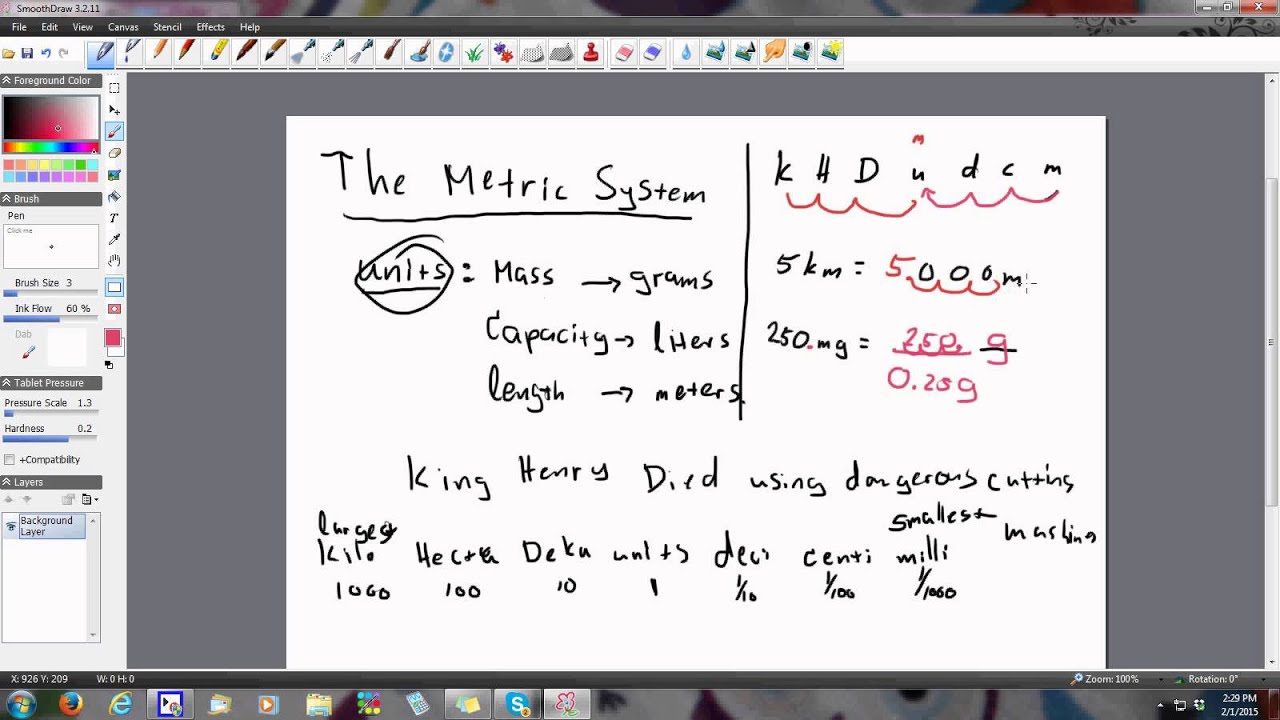 SmoothDraw 3.2.11
File Edit View Canvas Stencil Effects Help
Foreground Color
Brush
Pen
Click me
Brush Size 3
Ink Flow 60 %
Dab
Tablet Pressure
Pressure Scale 1.3
Hardness 0.2
+Compatibility
Layers
Background Layer
The Metric System
units: Mass → grams
Capacity → liters
length → meters
m
k H D u d c m
5km = 5000m
250.mg = 250. g
0.250g
King Henry Died using dangerous cutting
machine
largest
smallest
kilo Hecta Deka units deci centi milli
1000 100 10 1 1/10 1/100 1/1000
X: 926 Y: 209 W: 0 H: 0
Zoom: 100% Rotation: 0°
2:29 PM
2/1/2015